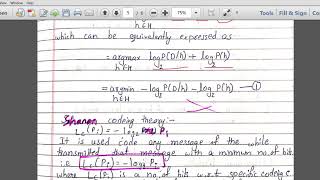 5
75%
Tools
Fill & Sign
Comment
which can be equivalently expressed as
= argmax log₂ P(D/h) + log₂ P(h)
h∈H
= argmin - log₂ P(D/h) - log₂ P(h) - ①
h∈H
Shanon coding theory:-
Lc(Pi) = - log₂ Pi
It is used code any message if the while
transmitted that message with a minimum no. of bits
i.e. Lc(Pi) = - log₂ Pi
where Lc(Pi) is a no. of bits w.r.t specific coding c.